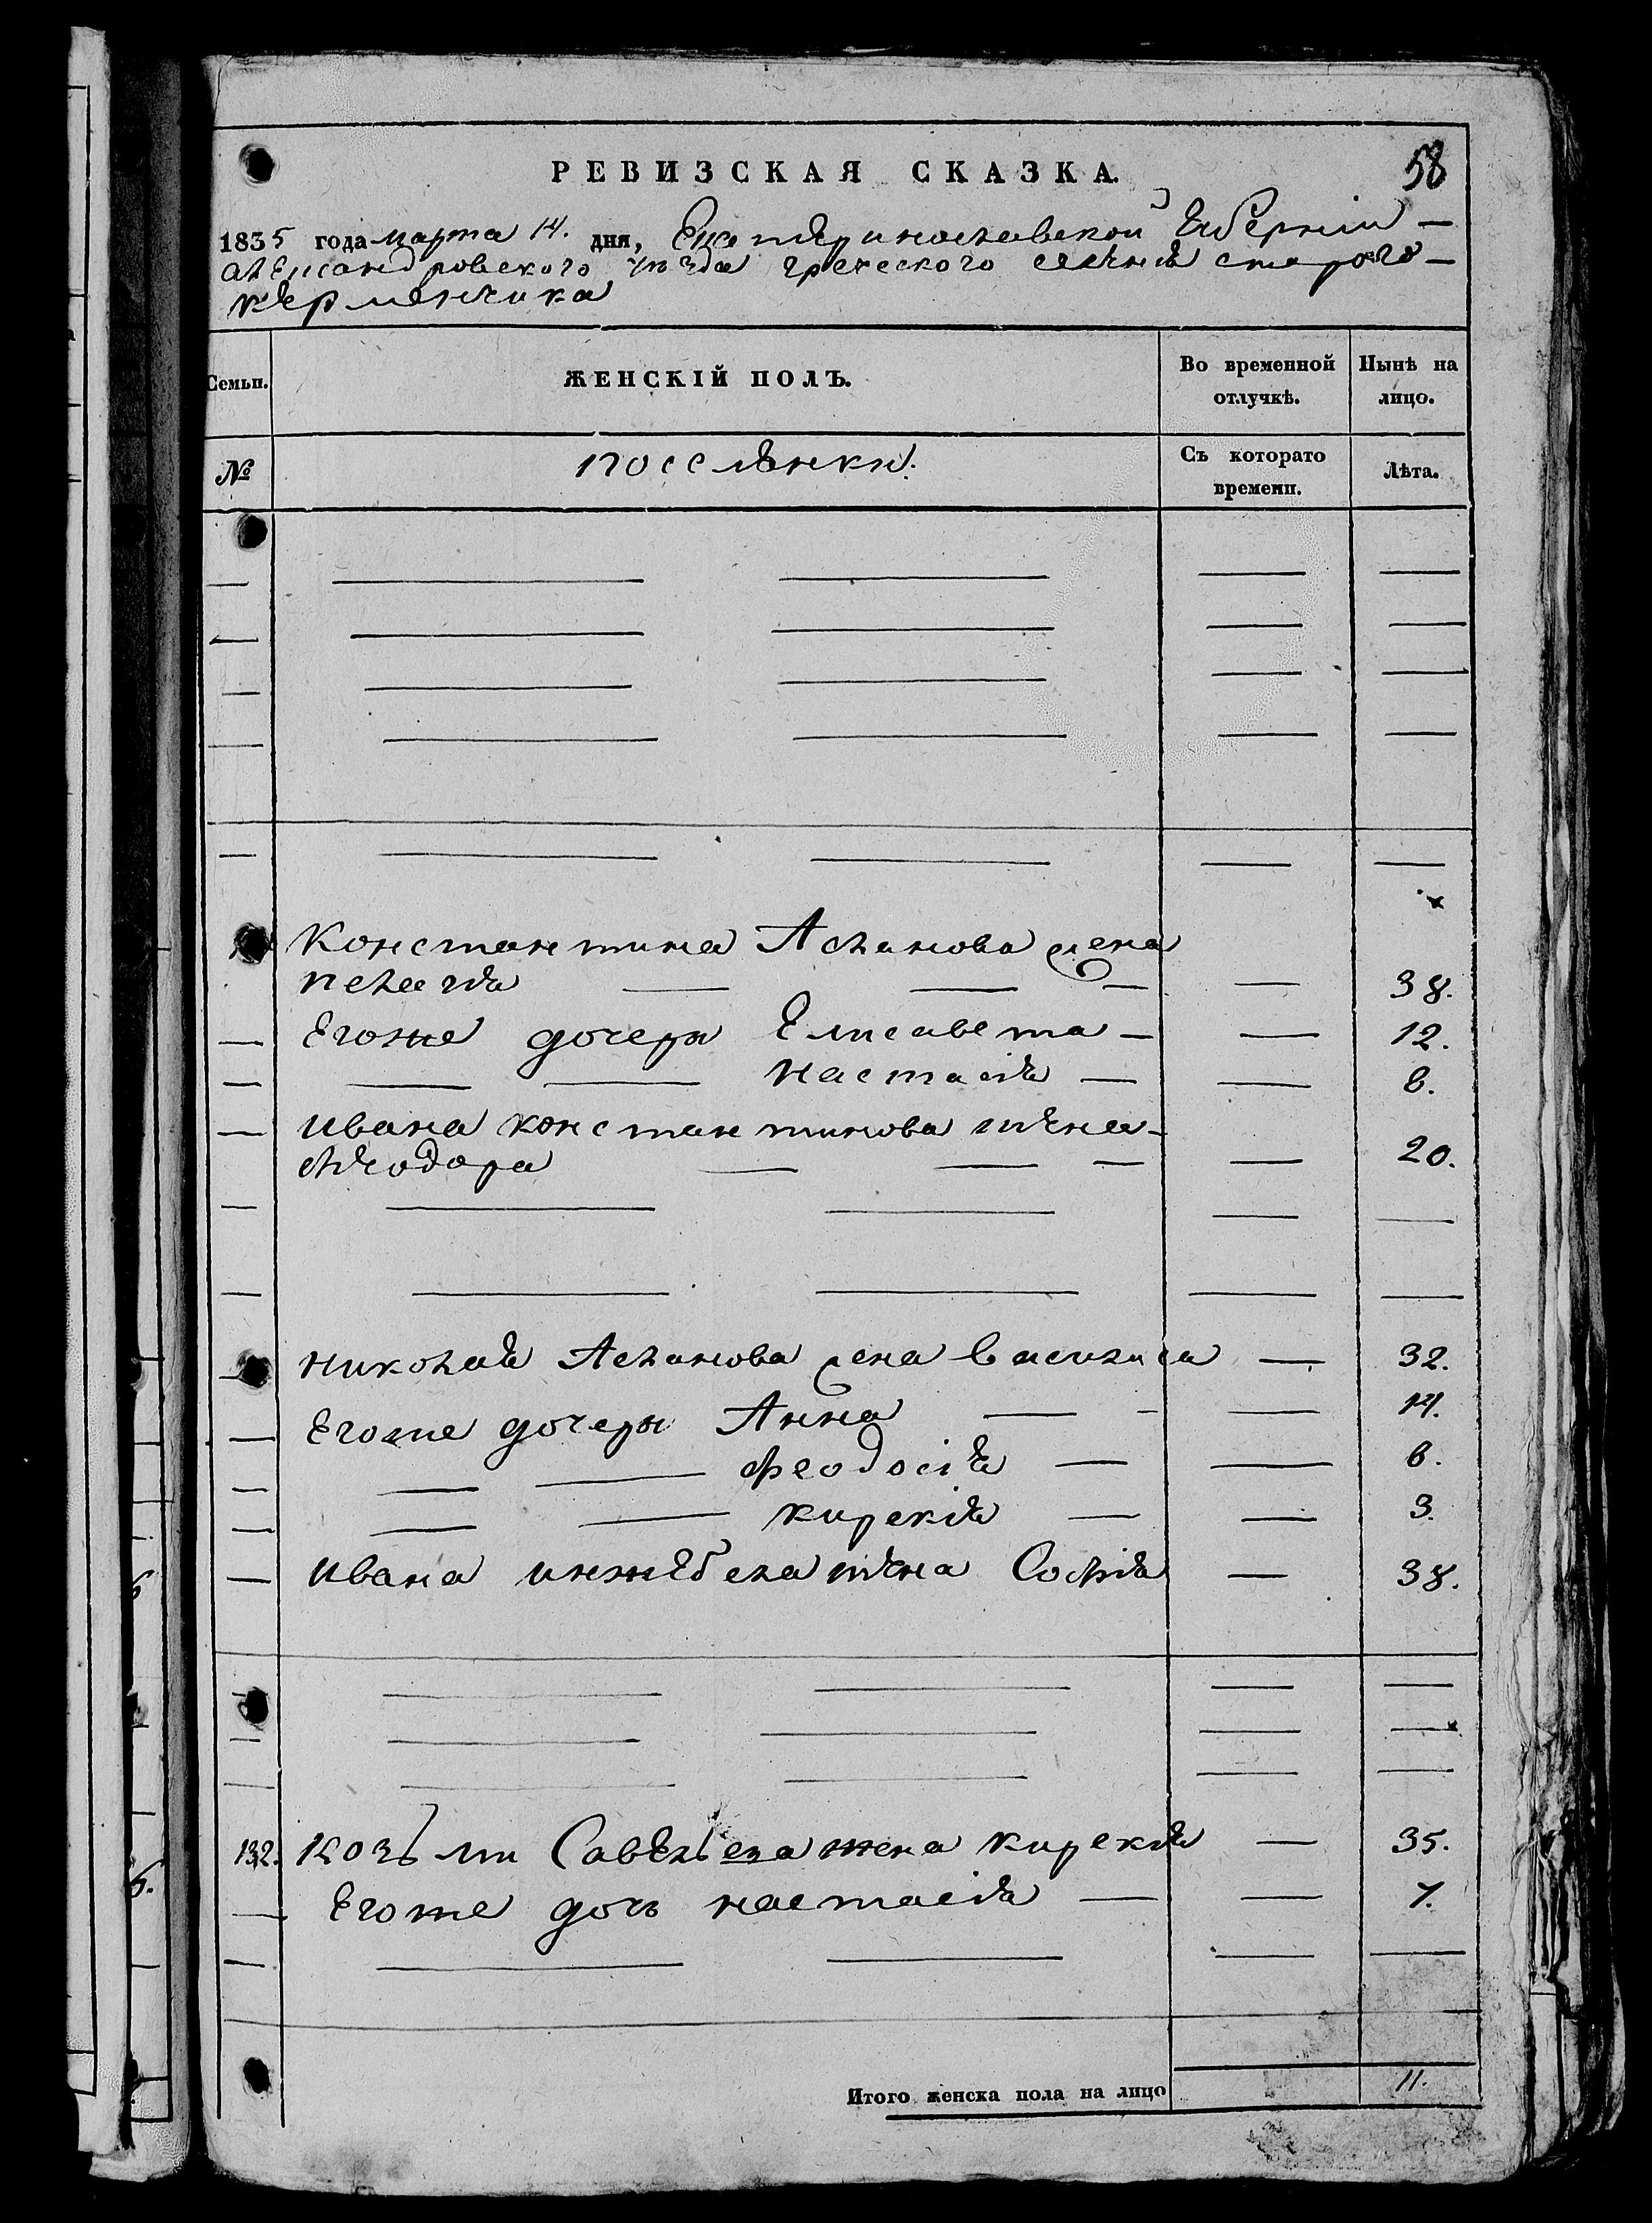 РЕВИЗСКАЯ СКАЗКА.
58
1835 года марта 14. дня, Екатеринославской Губерніи —
александровского уезда греческого селенія старого —
керменчика
Семьи.
ЖЕНСКІЙ ПОЛЪ.
Во временной отлучкѣ.
Нынѣ на лицо.
№
поселянки.
Съ которато времени.
Лѣта.
Константина Асланова жена
пелагія — — — — 38.
Егоже дочери Елисавета — — 12.
— — — настасія — — 8.
ивана константинова жена —
феодора — — — — 20.
николая Асланова жена василиса — 32.
Егоже дочери Анна — — — 14.
— — — феодосія — — 6.
— — — кирекія — — 3.
ивана жена Софія — 38.
132. козьми Савельева жена кирекія — 35.
— Егоже дочь настасія — — 7.
Итого женска пола на лицо 11.